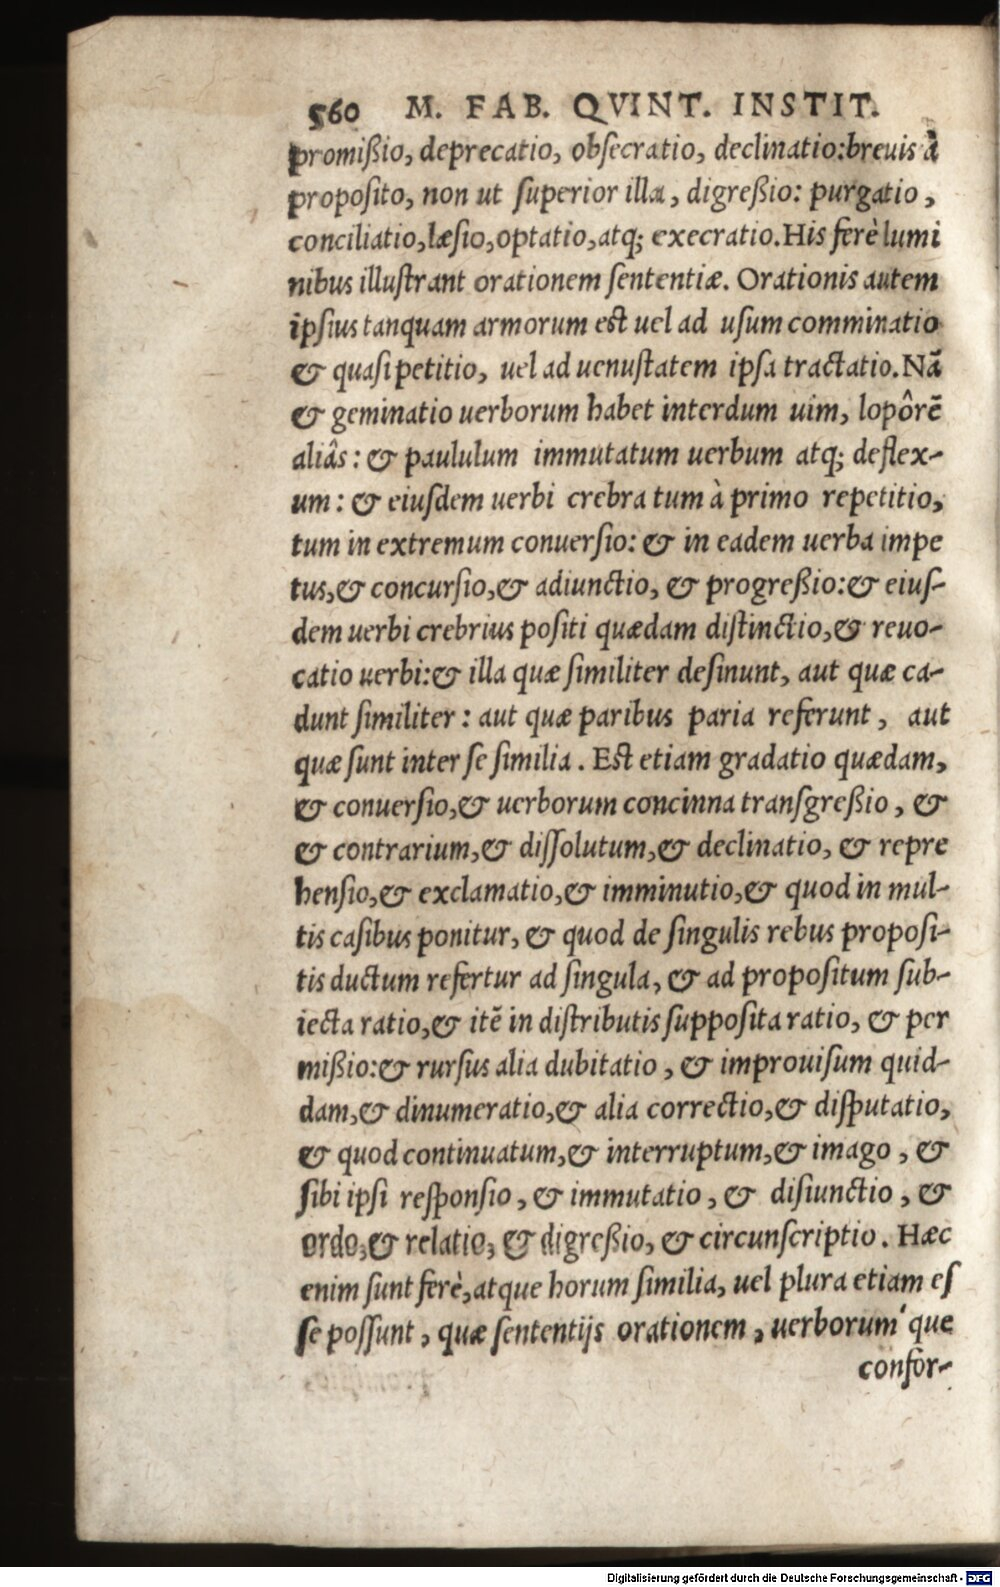 560 M. FAB. QVINT. INSTIT.
promißio, deprecatio, obſecratio, declinatio:breuis à
propoſito, non ut ſuperior illa, digreßio: purgatio,
conciliatio,læſio,optatio,atq; execratio.His ferè lumi
nibus illuſtrant orationem ſententiæ. Orationis autem
ipſius tanquam armorum eſt uel ad uſum comminatio
& quaſi petitio, uel ad uenuſtatem ipſa tractatio.Nã
& geminatio uerborum habet interdum uim, lopôrẽ
aliâs: & paululum immutatum uerbum atq; deflex-
um: & eiuſdem uerbi crebra tum à primo repetitio,
tum in extremum conuerſio: & in eadem uerba impe
tus,& concurſio,& adiunctio, & progreßio:& eiuſ-
dem uerbi crebrius poſiti quædam diſtinctio,& reuo-
catio uerbi:& illa quæ ſimiliter deſinunt, aut quæ ca-
dunt ſimiliter: aut quæ paribus paria referunt, aut
quæ ſunt inter ſe ſimilia. Eſt etiam gradatio quædam,
& conuerſio,& uerborum concinna tranſgreßio, &
& contrarium,& diſſolutum,& declinatio, & repre
henſio,& exclamatio,& imminutio,& quod in mul-
tis caſibus ponitur, & quod de ſingulis rebus propoſi-
tis ductum refertur ad ſingula, & ad propoſitum ſub-
iecta ratio,& itẽ in diſtributis ſuppoſita ratio, & per
mißio:& rurſus alia dubitatio, & improuiſum quid-
dam,& dinumeratio,& alia correctio,& diſputatio,
& quod continuatum,& interruptum,& imago, &
ſibi ipſi reſponſio, & immutatio, & diſiunctio, &
ordo,& relatio, & digreßio, & circunſcriptio. Hæc
enim ſunt ferè,atque horum ſimilia, uel plura etiam eſ
ſe poſſunt, quæ ſententijs orationem, uerborum´que
confor-
Digitalisierung gefördert durch die Deutsche Forschungsgemeinschaft - DFG